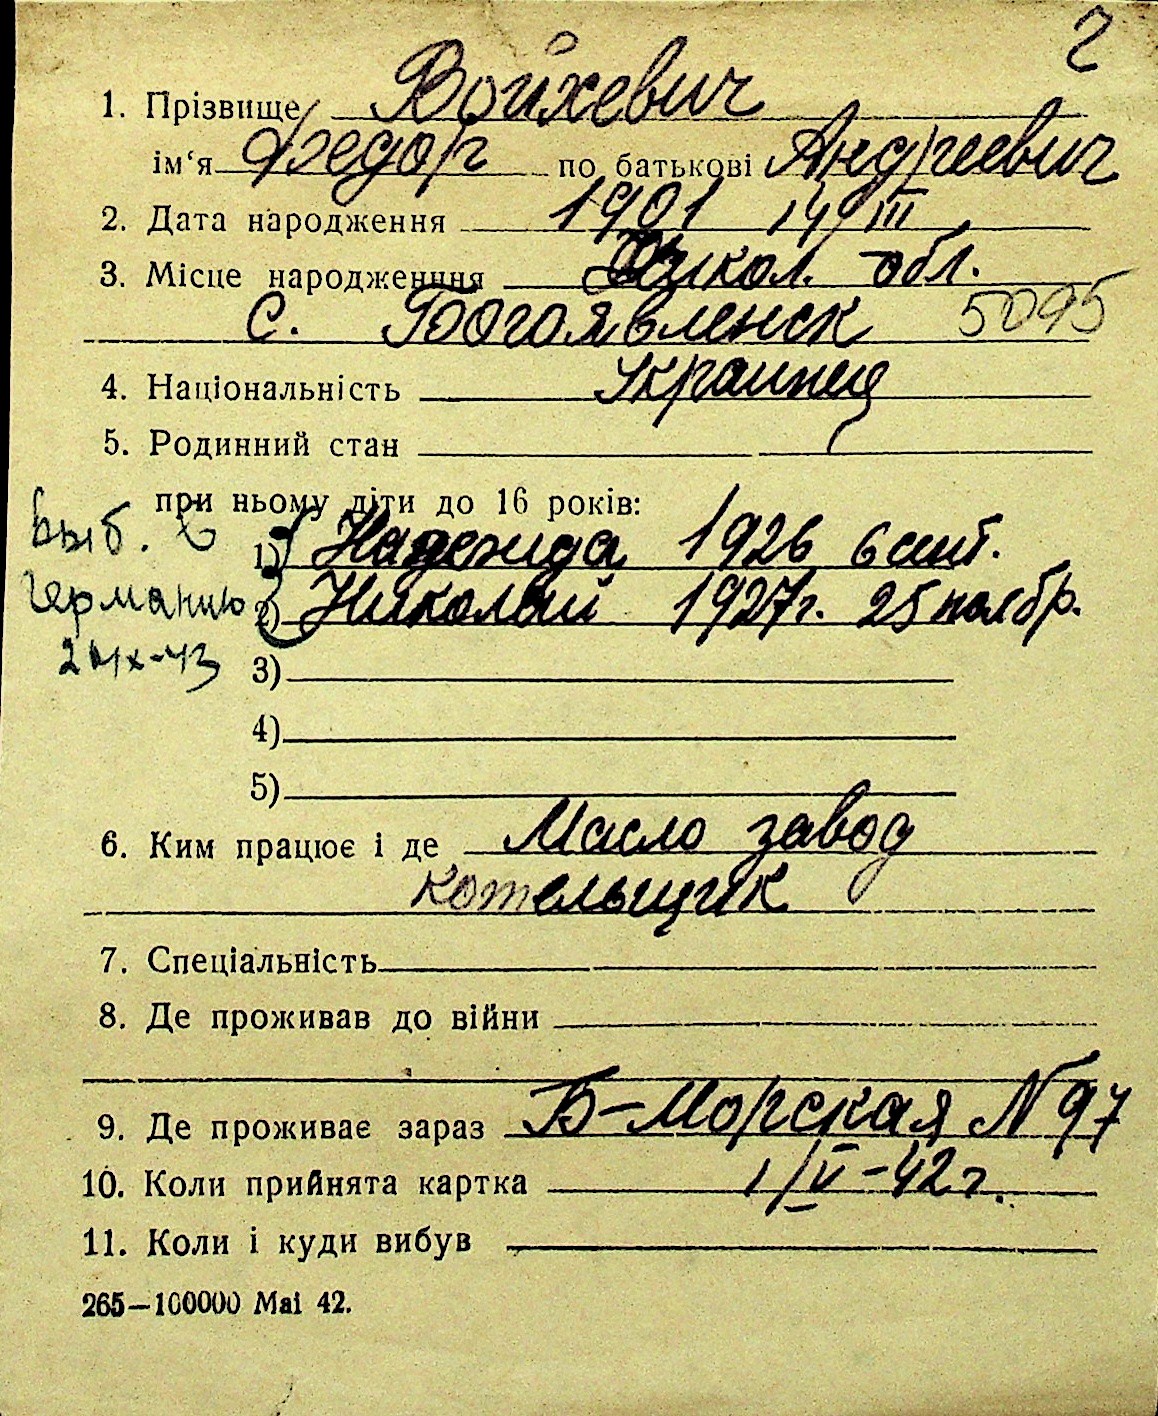 2
1. Прізвище Войхевич
ім‘я Федор по батькові Андреевич
2. Дата народження 1901 14/III
3. Місце народженння Никол. обл.
с. Богоявленск 5095
4. Національність Украинец
5. Родинний стан
при ньому діти до 16 років:
выб. в
1) Надежида 1926 6 сент.
германию
2) Николай 1927г. 25 ноябр.
3)
4)
5)
6. Ким працює і де Масло завод
котельщик
7. Спеціальність
8. Де проживав до війни
9. Де проживає зараз Б-Морская N 97
10. Коли прийнята картка 1/V-42г.
11. Коли і куди вибув
265—100000 Mai 42.